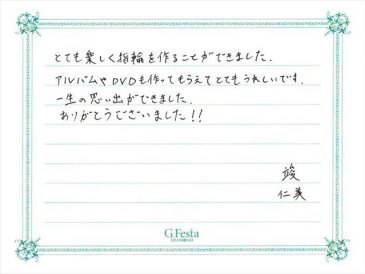 とても楽しく指輪を作ることができました.
アルバムやDVDも作ってもらえてとてもうれしいです.
一生の思い出ができました.
ありがとうございました!!
竣
仁美
G.Festa
DIAMOND